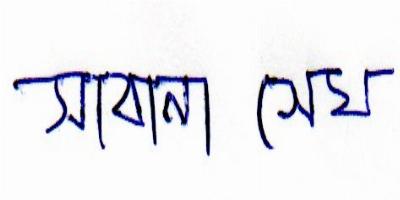 সাবানা সেখ